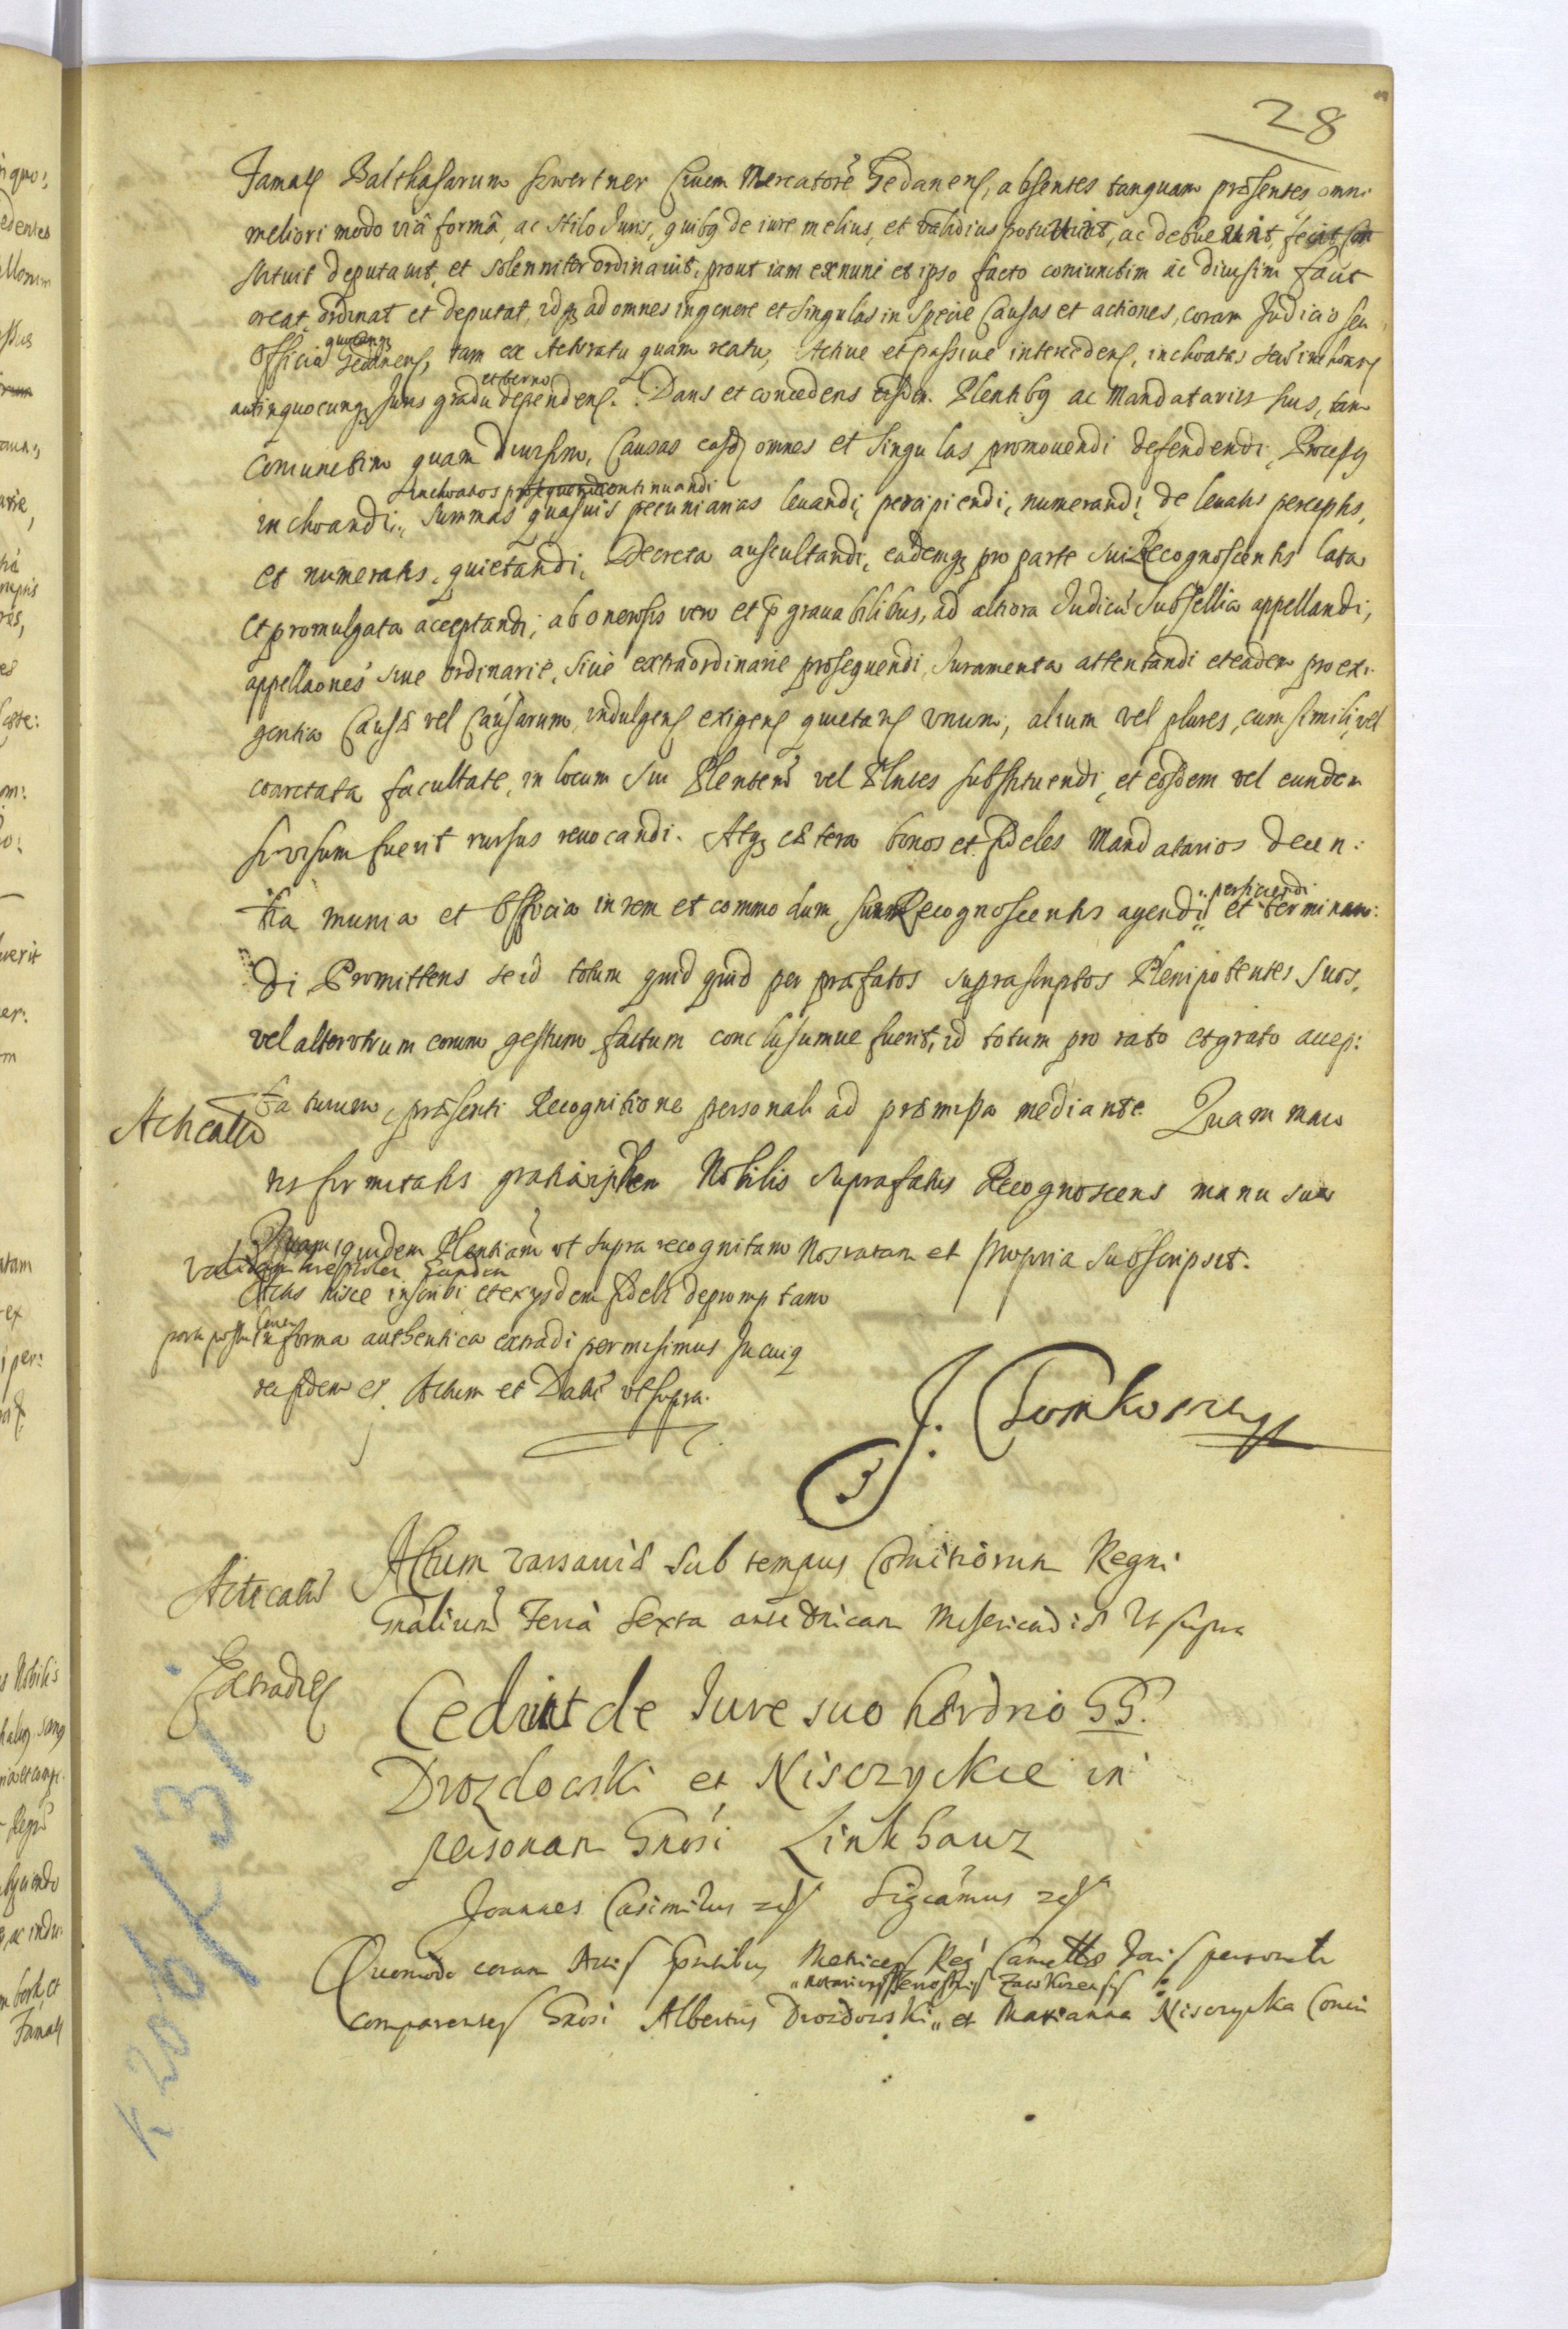 28
Famaꝶ Balthasarum Szwertner Civem Mercatorē Gedanenꝶ, absentes tanquam præsentes omni
meliori modo viâ formâ, ac stilo Juris, quibꝫ de iure melius, et validius potuit, ac debuerunt, fecit con
stituit deputavit, et solenniter ordinavit, prout iam ex nunc et ipso facto coniunctim ac divisim facit
creat ordinat et deputat, idqꝫ ad omnes in genere et singulas in specie Causas et actiones, coram Judicio seu
quocunqꝫ
Officio Gedanenꝶ, tam ex Actoratu quam reatu, Active et passive intercedenꝶ, inchoatas seu inchoanꝶ
et termo
aut in quocunqꝫ Juris gradu dependenꝶ. Dans et concedens eisdem Plentibꝫ ac Mandatariis suis, tam
Coniunctim quam Divisim, Causas easdꝫ omnes et Singulas promovendi defendendi, Processꝫ
inchoatos continuandi
inchoandi, Summas quasvis pecuniarias levandi, percipiendi, numerandi, de levatis perceptis,
et numeratis, quietandi, Decreta auscultandi, eademqꝫ pro parte sui Recognoscentis lata
et promulgata acceptandi, ab onerosis vero et pgravabilibus, ad altiora Judicij Subsellia appellandi,
appellaones sive ordinarie, sive extraordinarie prosequendi, Juramenta attentandi et eadem pro exi
gentia Causæ vel Causarum, indulgenꝶ exigenꝶ quietanꝶ unum, alium vel plures, cum simili, vel
coarctata facultate, in locum sui Plentem vel Plntes substituendi, et eosdem vel eundem
si visum fuerit rursus revocandi. Atqꝫ cætera bonos et fideles Mandatarios decen:
perficiendi
tia munia et Officia in rem et commodum suum Recognoscentis agendi et terminan:
di Promittens se id totum quid quid per præfatos suprascriptos Plenipotentes suos,
vel alterutrum eorum gestum factum conclusumve fuerit, id totum pro rato et grato accep:
taturum, præsenti Recognitione personali ad præmissa mediante. Quam maio
Acticatio
ris firmitatis gratia idem Nobilis suprafatus Recognoscens manu sua
propria subscripsit.
Quam quidem Plentiam ut supra recognitam Nos ratam et
validam Eandem
Actis hisce inscribi et ex ijsdem fideli depromptam
parti postu
in forma authentica extradi permisimus In cuiꝫ
rei fidem et. Actum et Datū ut supra.
J. Tomkowicz
Actum Varsaviæ Sub tempus Comitiorum Regni
Acticatū
Gnalium Feria Sexta ante Dnicam Misericordiæ Ut supra
Extradiꝶ
Cedunt de Jure suo hærdrio GG.
Drozdowski et Nisczyckie in
personam Gnosi Linkhauz
Joannes Casimirus Significamus
Quomodo coram Actis pntibus Metrices Reg Cancellæ personalr
comparentes Gnosi Albertus Drozdowski et Marianna Nisczycka Coniu
K 206/K 31